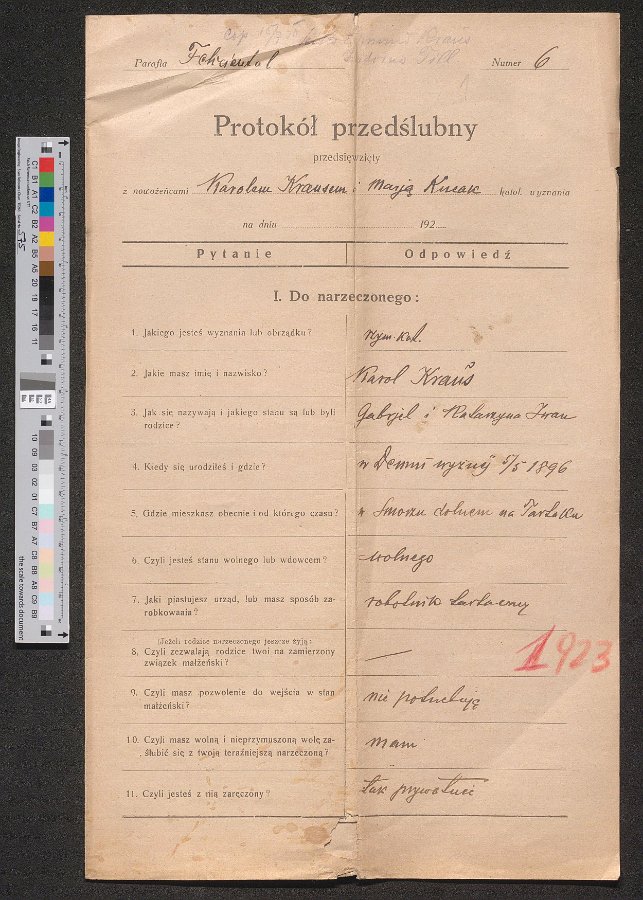 Parafia Felicienthal Numer 6
Protokół przedślubny
przedsięwzięty
z nowożeńcami Karolem Krausem i Marją Kucak katol. wyznania
na dniu 192
Pytanie Odpowiedź
I. Do narzeczonego:
1. Jakiego jesteś wyznania lub obrządku? rzym.-kat.
2. Jakie masz imię i nazwisko? Karol Kraus
3. Jak się nazywają i jakiego stanu są lub byli Gabrjel i Katarzyna
rodzice?
4. Kiedy się urodziłeś i gdzie? w Demni wyżnej 5/5 1896
5. Gdzie mieszkasz obecnie i od którego czasu? w Smorzu dolnem na Tartaku
6. Czyli jesteś stanu wolnego lub wdowcem? wolnego
7. Jaki piastujesz urząd, lub masz sposób za-
robkowania? robotnik tartaczny
(Jeżeli rodzice narzeczonego jeszcze żyją:
8. Czyli zezwalają rodzice twoi na zamierzony —
związek małżeński?
1923
9. Czyli masz pozwolenie do wejścia w stan nie potrzebuję
małżeński?
10. Czyli masz wolną i nieprzymuszoną wolę za- mam
ślubić się z twoją teraźniejszą narzeczoną?
11. Czyli jesteś z nią zaręczony? tak prywatnie
C1 B1 A1 C2 B2 A2 B5 A5 20 18 17 16 11
575
10 09 03 02 01 C7 B7 A7 C8 B8 A8 C9 B9
the scale towards document